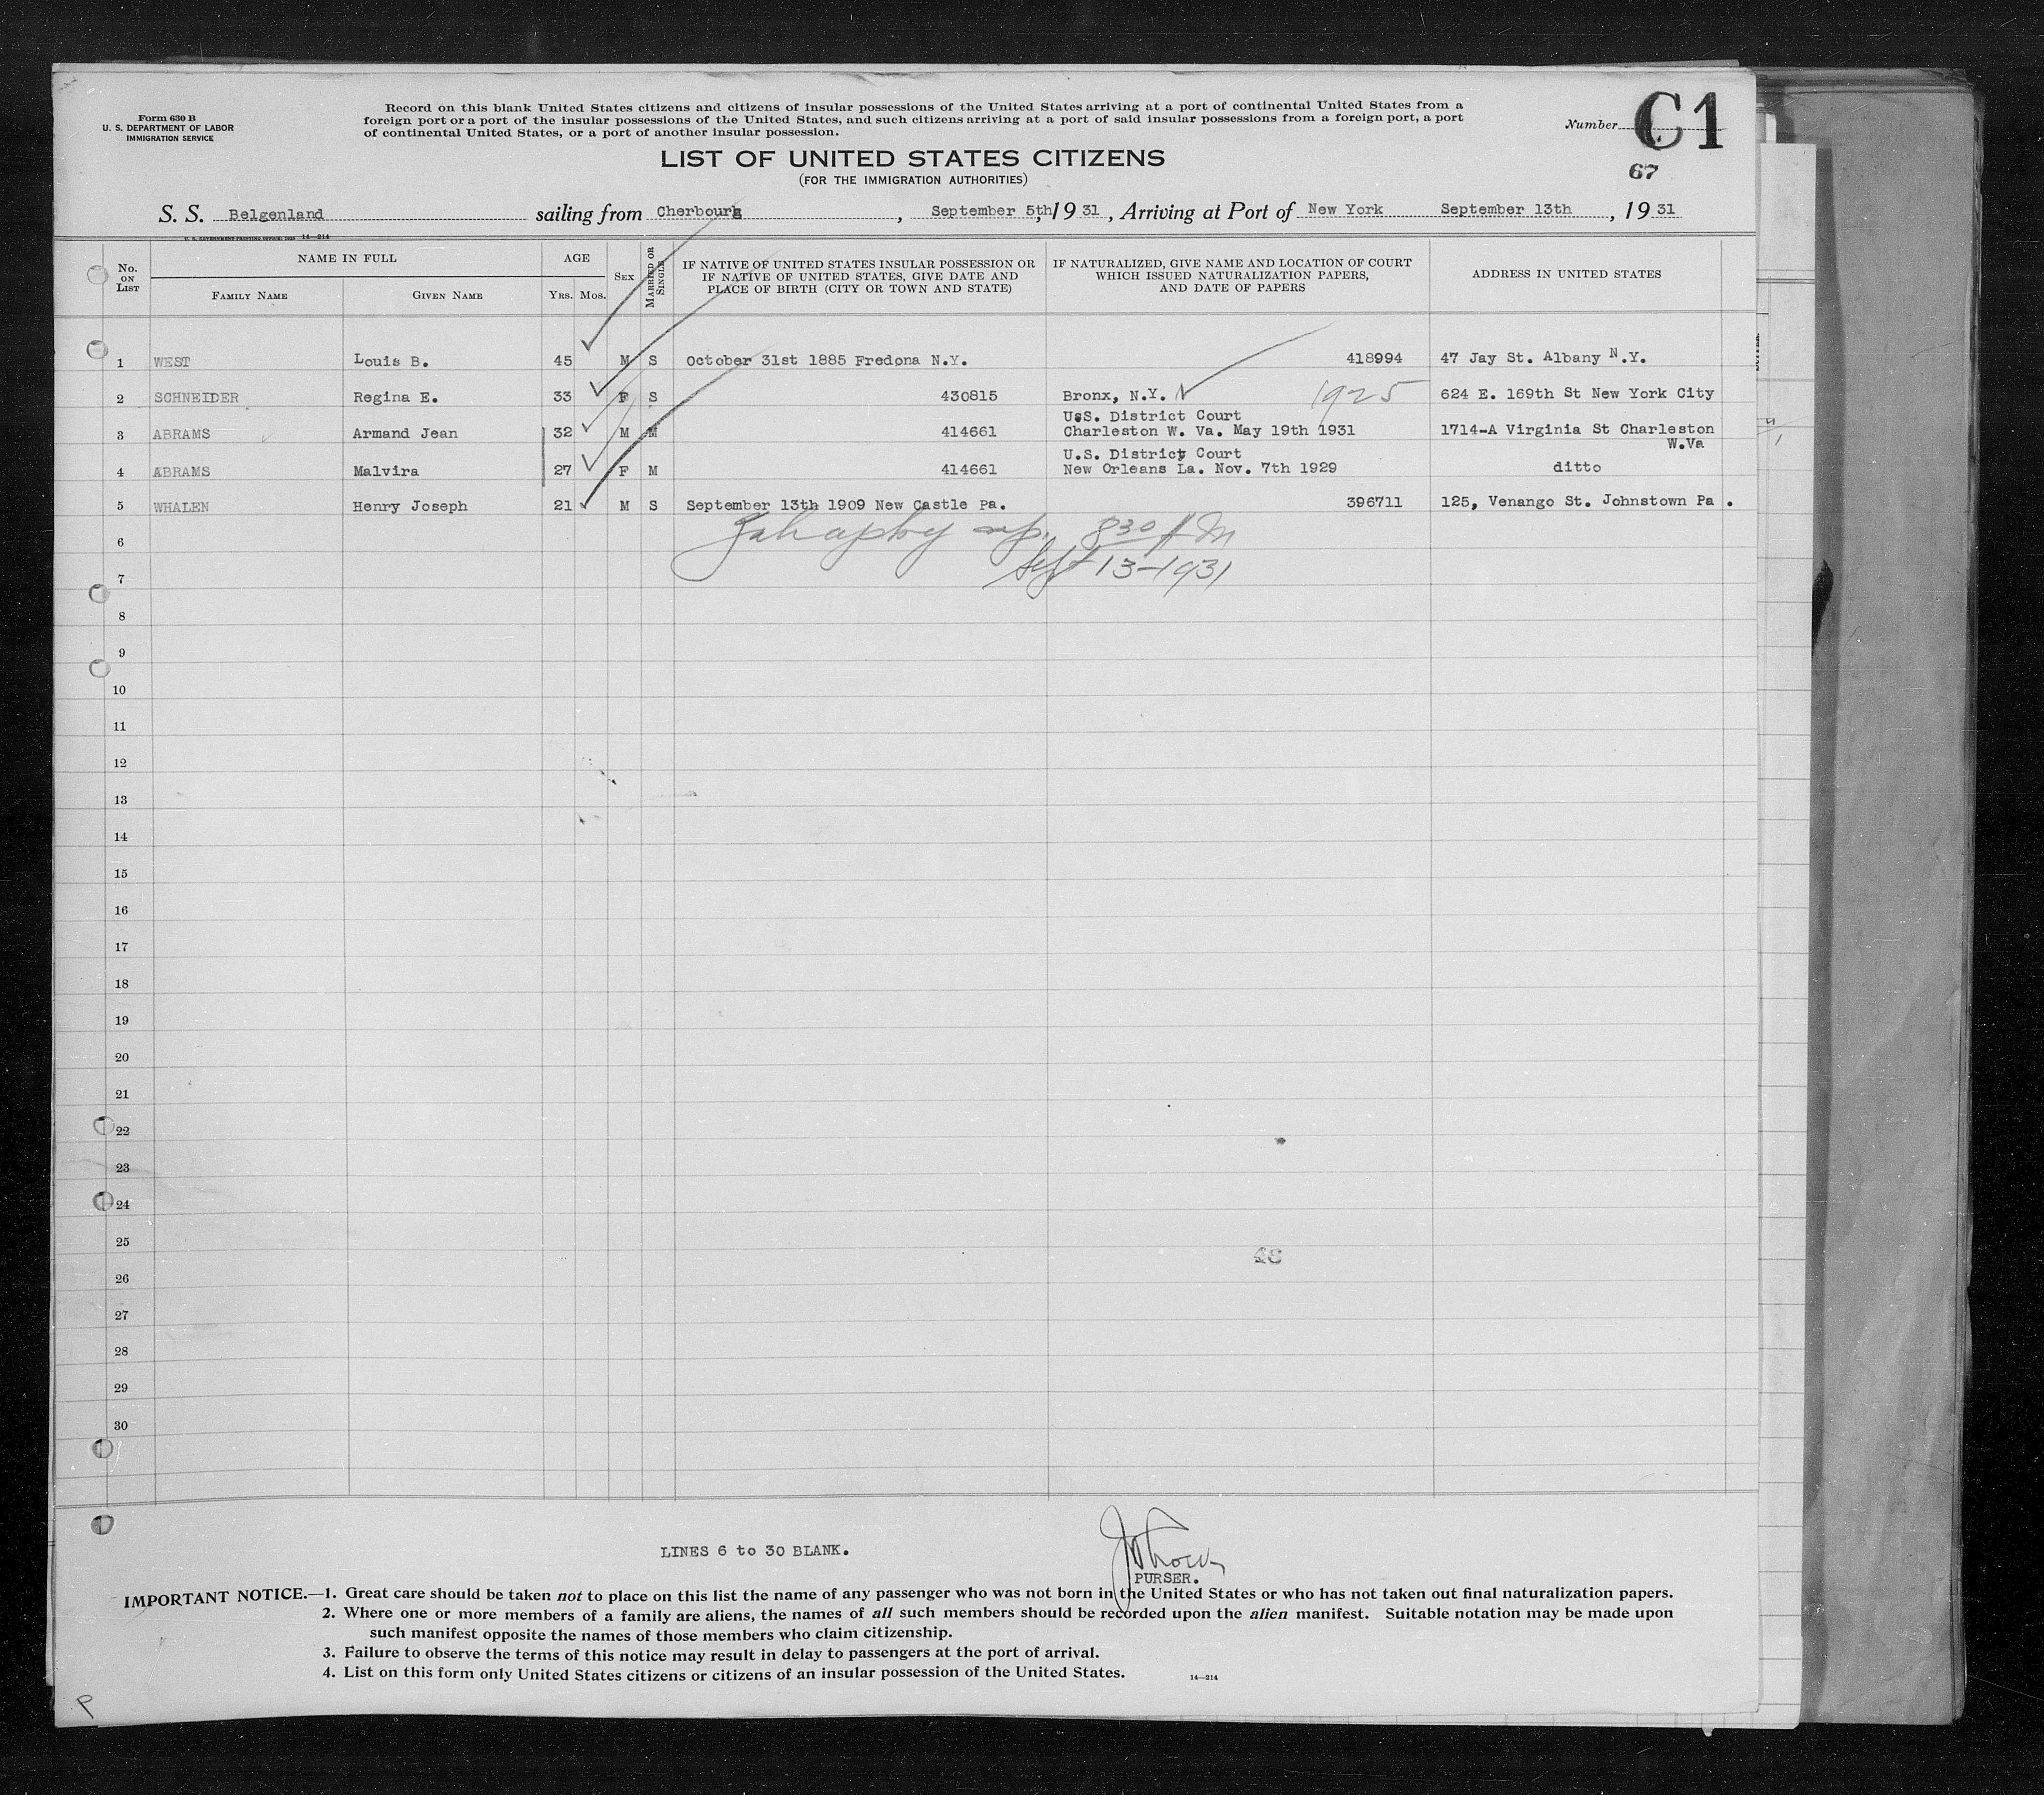 Form 630 B
U. S. DEPARTMENT OF LABOR
IMMIGRATION SERVICE
Record on this blank United States citizens and citizens of insular possessions of the United States arriving at a port of continental United States from a
foreign port or a port of the insular possessions of the United States, and such citizens arriving at a port of said insular possessions from a foreign port, a port
of continental United States, or a port of another insular possession.
Number C1
67
LIST OF UNITED STATES CITIZENS
(FOR THE IMMIGRATION AUTHORITIES)
S. S. Belgenland sailing from Cherbourg, September 5th, 1931, Arriving at Port of New York September 13th, 1931
U. S. GOVERNMENT PRINTING OFFICE: 14—214
No. ON LIST NAME IN FULL AGE SEX MARRIED OR SINGLE IF NATIVE OF UNITED STATES INSULAR POSSESSION OR IF NATIVE OF UNITED STATES, GIVE DATE AND PLACE OF BIRTH (CITY OR TOWN AND STATE) IF NATURALIZED, GIVE NAME AND LOCATION OF COURT WHICH ISSUED NATURALIZATION PAPERS, AND DATE OF PAPERS ADDRESS IN UNITED STATES
FAMILY NAME GIVEN NAME YRS. MOS.
1 WEST Louis B. 45 M S October 31st 1885 Fredona N.Y. 418994 47 Jay St. Albany N.Y.
2 SCHNEIDER Regina E. 33 F S 430815 Bronx, N.Y. 1925 624 E. 169th St New York City
U.S. District Court
3 ABRAMS Armand Jean 32 M M 414661 Charleston W. Va. May 19th 1931 1714-A Virginia St Charleston
W.Va
U.S. District Court
4 ABRAMS Malvira 27 F M 414661 New Orleans La. Nov. 7th 1929 ditto
5 WHALEN Henry Joseph 21 M S September 13th 1909 New Castle Pa. 396711 125, Venango St. Johnstown Pa .
6 830 A M
7 Sept 13-1931
8
9
10
11
12
13
14
15
16
17
18
19
20
21
22
23
24
25
26
27
28
29
30
LINES 6 to 30 BLANK.
PURSER.
IMPORTANT NOTICE.—1. Great care should be taken not to place on this list the name of any passenger who was not born in the United States or who has not taken out final naturalization papers.
2. Where one or more members of a family are aliens, the names of all such members should be recorded upon the alien manifest. Suitable notation may be made upon
such manifest opposite the names of those members who claim citizenship.
3. Failure to observe the terms of this notice may result in delay to passengers at the port of arrival.
4. List on this form only United States citizens or citizens of an insular possession of the United States.
14—214
P